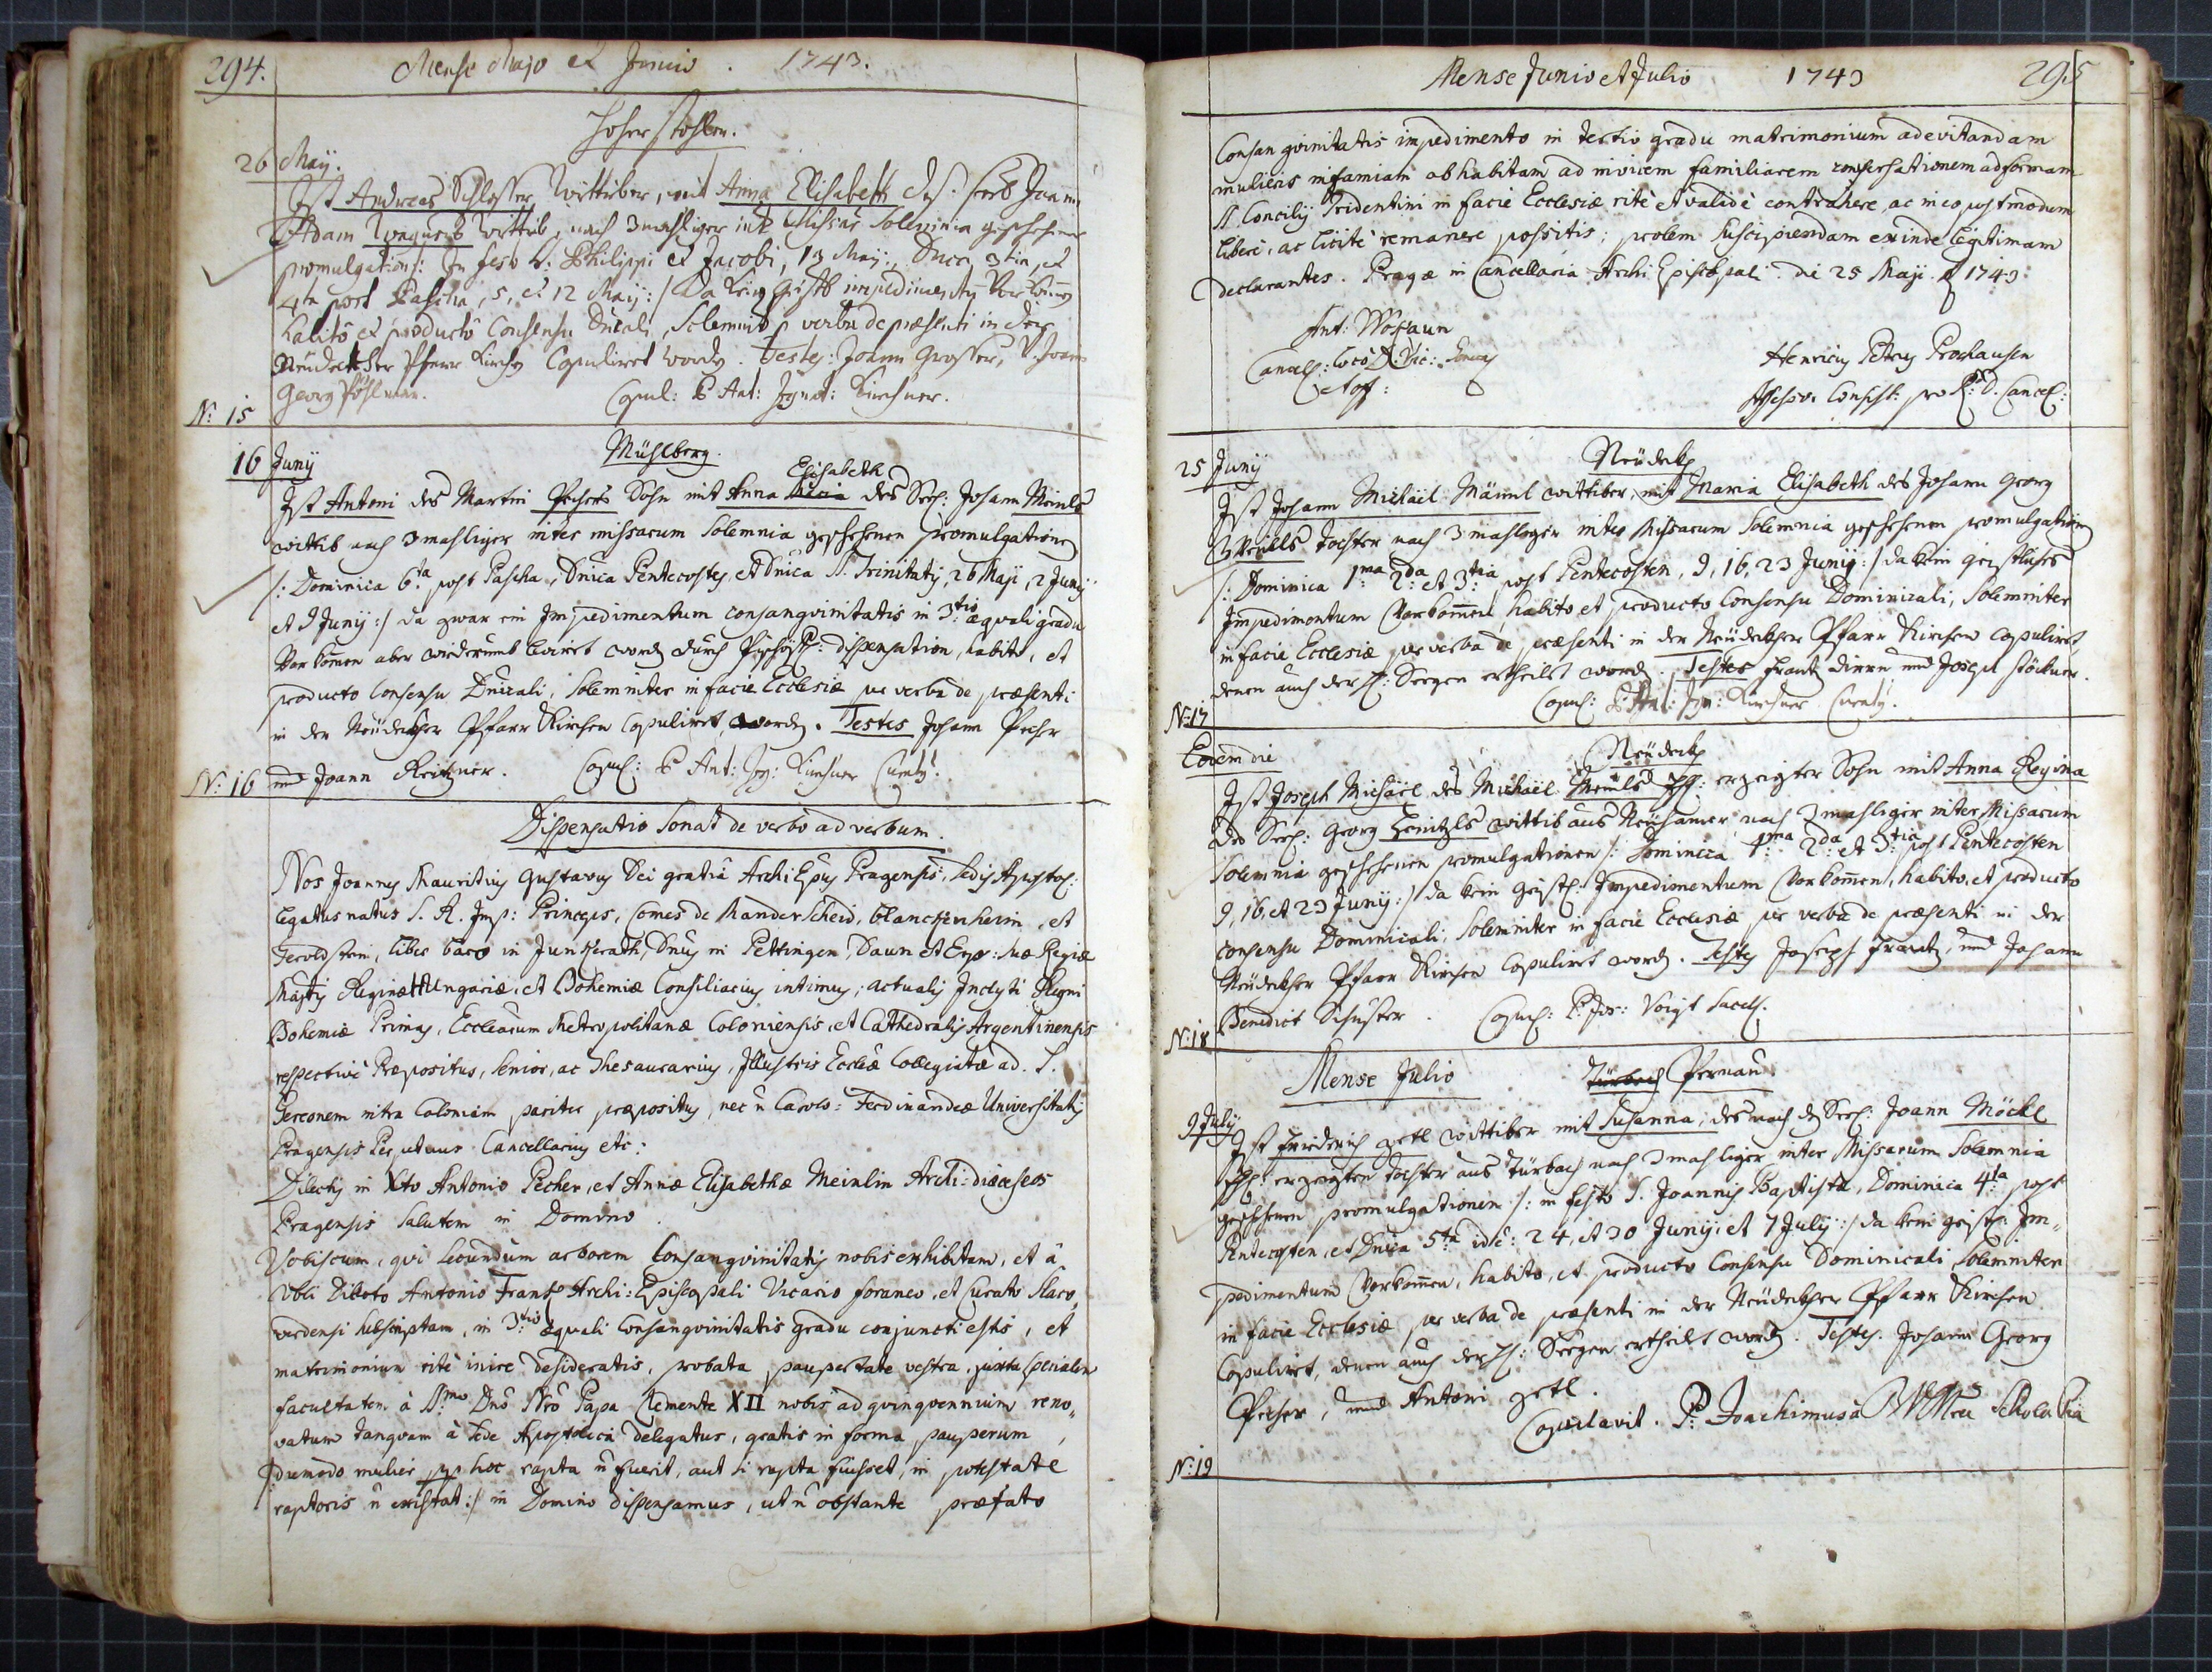 294. Mense Majo et Junio. 1743.
Hoher Stollen.
26 Maij.
Ist Andreas Schlosser Wittiber, mit Anna Elisabeth des seel: Joann
Adam Wagners Wittib, nach 3mahliger inter Missar: Solemnia geschehener
promulgation /: In festo SS. Philippi et Jacobi, 1 Maij, Dnica 3tia, et
4ta post Pascha, 5, et 12 Maij :/ da kein geistl: impedimentum Vorkomen
habito et producto Consensu Dnicali, Solemniter per verba de præsenti in der
Neudekher Pfarr Kirchen Copuliret worden. Testes: Joann Grosser, V. Joann
Georg Pöhlman. Copul: P. Ant: Ignat: Kirchner.
No: 15
16 Junij Mühlberg.
Elisabeth
Ist Antoni des Martin Pechers Sohn mit Anna Maria des Seel: Johann Meinls
wittib nach 3mahliger inter missarum Solemnia geschehenen promulgationen
/: Dominica 6ta post Pascha, Dnica Pentecostes, et Dnica SS. Trinitatis, 26 Maji, 2 Junij
et 9 Junij :/ da zwar ein Impedimentum consangvinitatis in 3tio æqvali gradu
Vorkomen aber widerumb leviret worden durch Bischöfl: dispensation, habito, et
producto Consensu Dnicali, Solemniter in facie Ecclesiæ per verba de præsenti
in der Neudekher Pfarr Kirchen Copuliret worden. Testes Johann Pecher
und Joann Reitzner. Copul: P. Ant: Ign: Kirchner Curatus.
No: 16
Dispensatio Sonat de verbo ad verbum.
Nos Joannes Mauritius Gustavus Dei gratiâ Archi Epus Pragensis, Sedis Apostol:
legatus natus S. R. Imp: Princeps, Comes de Manderscheid, Blanckenheim, et
Geroldstein, liber baro in Junkerath, Dnus in Pettingen, Daun et Erp: suæ Regiæ
Majtis Reginæ Hungariæ, et Bohemiæ Consiliarius intimus, actualis Inclyti Regni
Bohemiæ Primas, Eccliarum Metropolitanæ Coloniensis, et Cathedralis Argentinensis
respectivè Præpositus, Senior, ac Thesaurarius, Illustris Eccliæ Collegiatæ ad S.
Gereonem intra Coloniam pariter præpositus, nec n Carolo: Ferdinandeæ Universitatis
Pragensis Perpetuus Cancellarius etc:
Dilectis in Xto Antonio Pecher, et Annæ Elisabethæ Meinlin Archi: diæceseos
Pragensis Salutem in Domino.
Vobiscum, qvi secundum arborem Consangvinitatis nobis exhibitam, et à
Vbli Dilecto Antonio Frantz Archi: Episcopali Vicario foraneo, et Curato Slaco„
verdensi subscriptam, in 3tio æqvali Consangvinitatis gradu conjuncti estis, et
matrimonium ritè inire desideratis, probata paupertate vestra, juxta specialem
facultatem à SSmo Dno Nro Papa Clemente XII nobis ad qvinqvennium reno„
vatam tanqvam à Sede Apostolica delegatus, gratis in forma pauperum,
dumodo mulier pp hoc rapta n fuerit, aut si rapta fuisset, in potestate
raptoris n existat :/ in Domino dispensamus, ut n obstante præfato
Mense Junio et Julio 1743 295
Consangvinitatis impedimento in tertio gradu matrimonium ad evitandam
mulieris infamiam ob habitam ad invicem familiarem conversationem ad formam
SS. Concilij Tridentini in facie Ecclesiæ ritè et validè contrahere, ac in eo postmodum
liberè, ac licitè remanere possitis; prolem suscipiendam exinde legitimam
declarantes. Pragæ in Cancellaria Archi Episcopali die 25 Maji 1743.
Ant: Wokaun
Cancell: loco D: Vic: Gen.
et off:
Henricus Petrus Prochausen
Assessor Consist: pro R: D. Cancel:
25 Junij Neudekh
Ist Johann Michäel Mainl wittiber, mit Maria Elisabeth des Johann Georg
Tochter nach 3mahliger inter Missarum Solemnia geschehenen promulgationen
/: Dominica 1ma 2da et 3tia post Pentecosten, 9, 16, 23 Junij :/ da kein geistliches
Impedimentum Vorkomen, habito et producto Consensu Dominicali, Solemniter
in facie Ecclesiæ per verba de præsenti in der Neudekher Pfarr Kirchen Copuliret,
denen auch der H: Seegen ertheilt worden. Testes Frantz Dinn und Joseph Stöckner.
Copul: P. Ant: Ign: Kirchner Curatus.
No: 17
Eodem die Neudekh
Ist Joseph Michäel des Michäel Meinls Ehl: erzeigter Sohn mit Anna Regina
des Seel: Georg Heintzls wittib aus Neuhamer nach 3mahliger inter Missarum
Solemnia geschehenen promulgationen /: Dominica 1ma 2da et 3tia post Pentecosten
9, 16, et 23 Junij :/ da kein geistl: Impedimentum Vorkomen, habito, et producto
consensu Dominicali, Solemniter in facie Ecclesiæ per verba de præsenti in der
Neudekher Pfarr Kirchen Copuliret worden. Testes Joseph Frantz, und Johann
Benedict Schuster. Copul: P. Jos: Voigt Sacell.
No: 18
Mense Julio Türbach Pernau
9 Julij
Ist Friderich Zettl wittiber mit Susanna, des nach des Seel: Joann Möckl
Ehl: erzeigten Tochter aus Türbach nach 3mahliger inter Missarum Solemnia
geschehenen promulgationen /: in festo S. Joannis Baptistæ, Dominica 4ta post
Pentecosten, et Dnica 5ta id e: 24, et 30 Junij, et 7 Julij :/ da kein geistl: Im„
pedimentum Vorkomen, habito, et producto Consensu Dominicali, Solemniter
in facie Ecclesiæ per verba de præsenti in der Neudekher Pfarr Kirchen
Copuliret, denen auch der H: Seegen ertheilt worden. Testes. Johann Georg
Pecher, und Antoni Zettl.
Copulavit. P. Joachimus à Schola Pia
No: 19